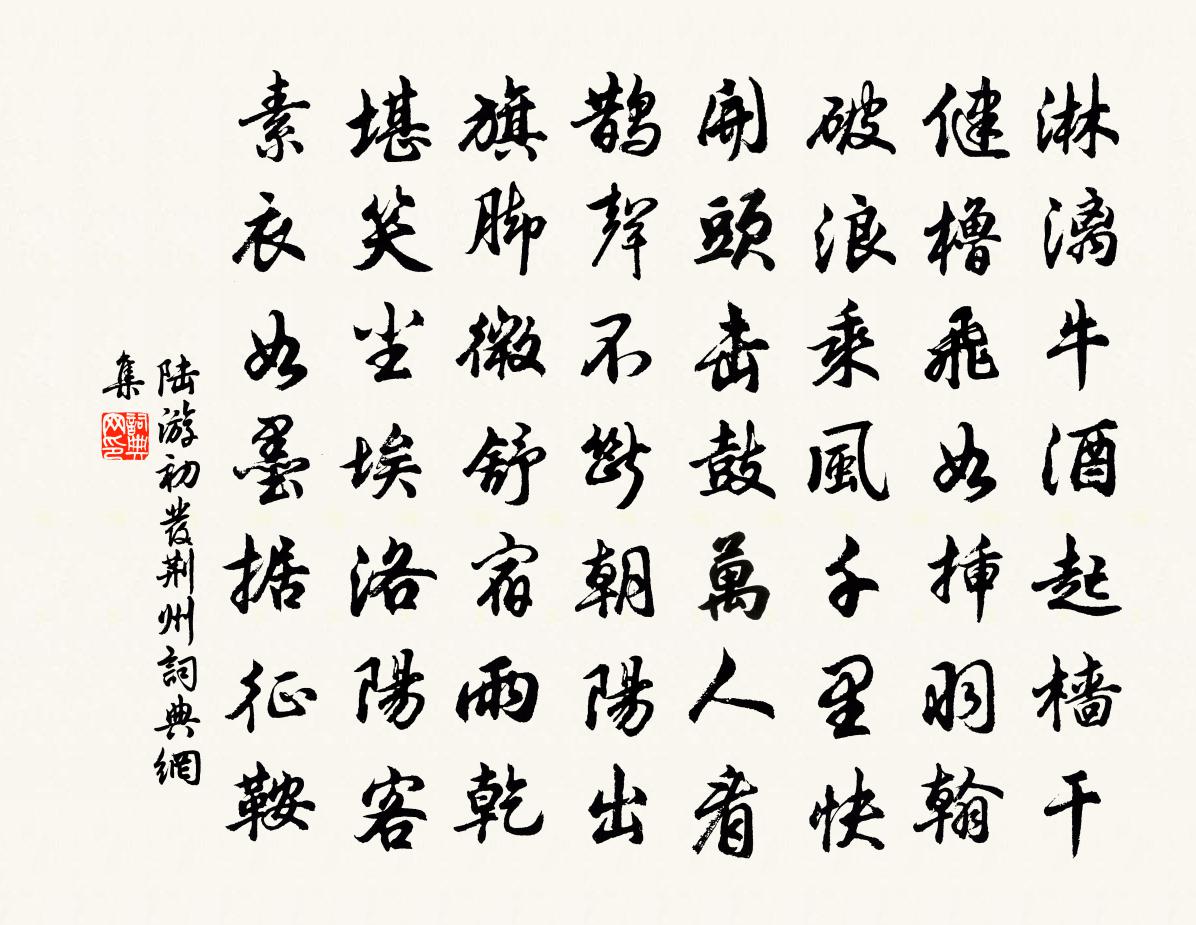 淋漓牛酒起檣干
健櫓飛如插羽翰
破浪乘風千里快
開頭擊鼓萬人看
鵲聲不斷朝陽出
旗脚微舒宿雨乾
堪笑塵埃洛陽客
素衣如墨據征鞍
陸游初發荆州詞典網
集
詞典
网印